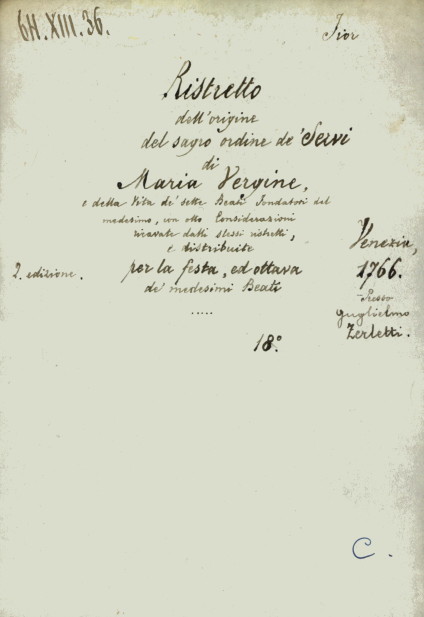 6H.XIII.36.
Fior
Ristretto
dell'origine
del sagro ordine de' Servi
di
Maria Vergine,
e della Vita de' sette Beati Fondatori del
medesimo, con otto Considerazioni
ricavate dalli stessi ristretti,
e distribuite
per la festa, ed ottava
de' medesimi Beati
.....
2. edizione.
Venezia,
1766.
Presso
Guglielmo
Zerletti.
18°.
C.